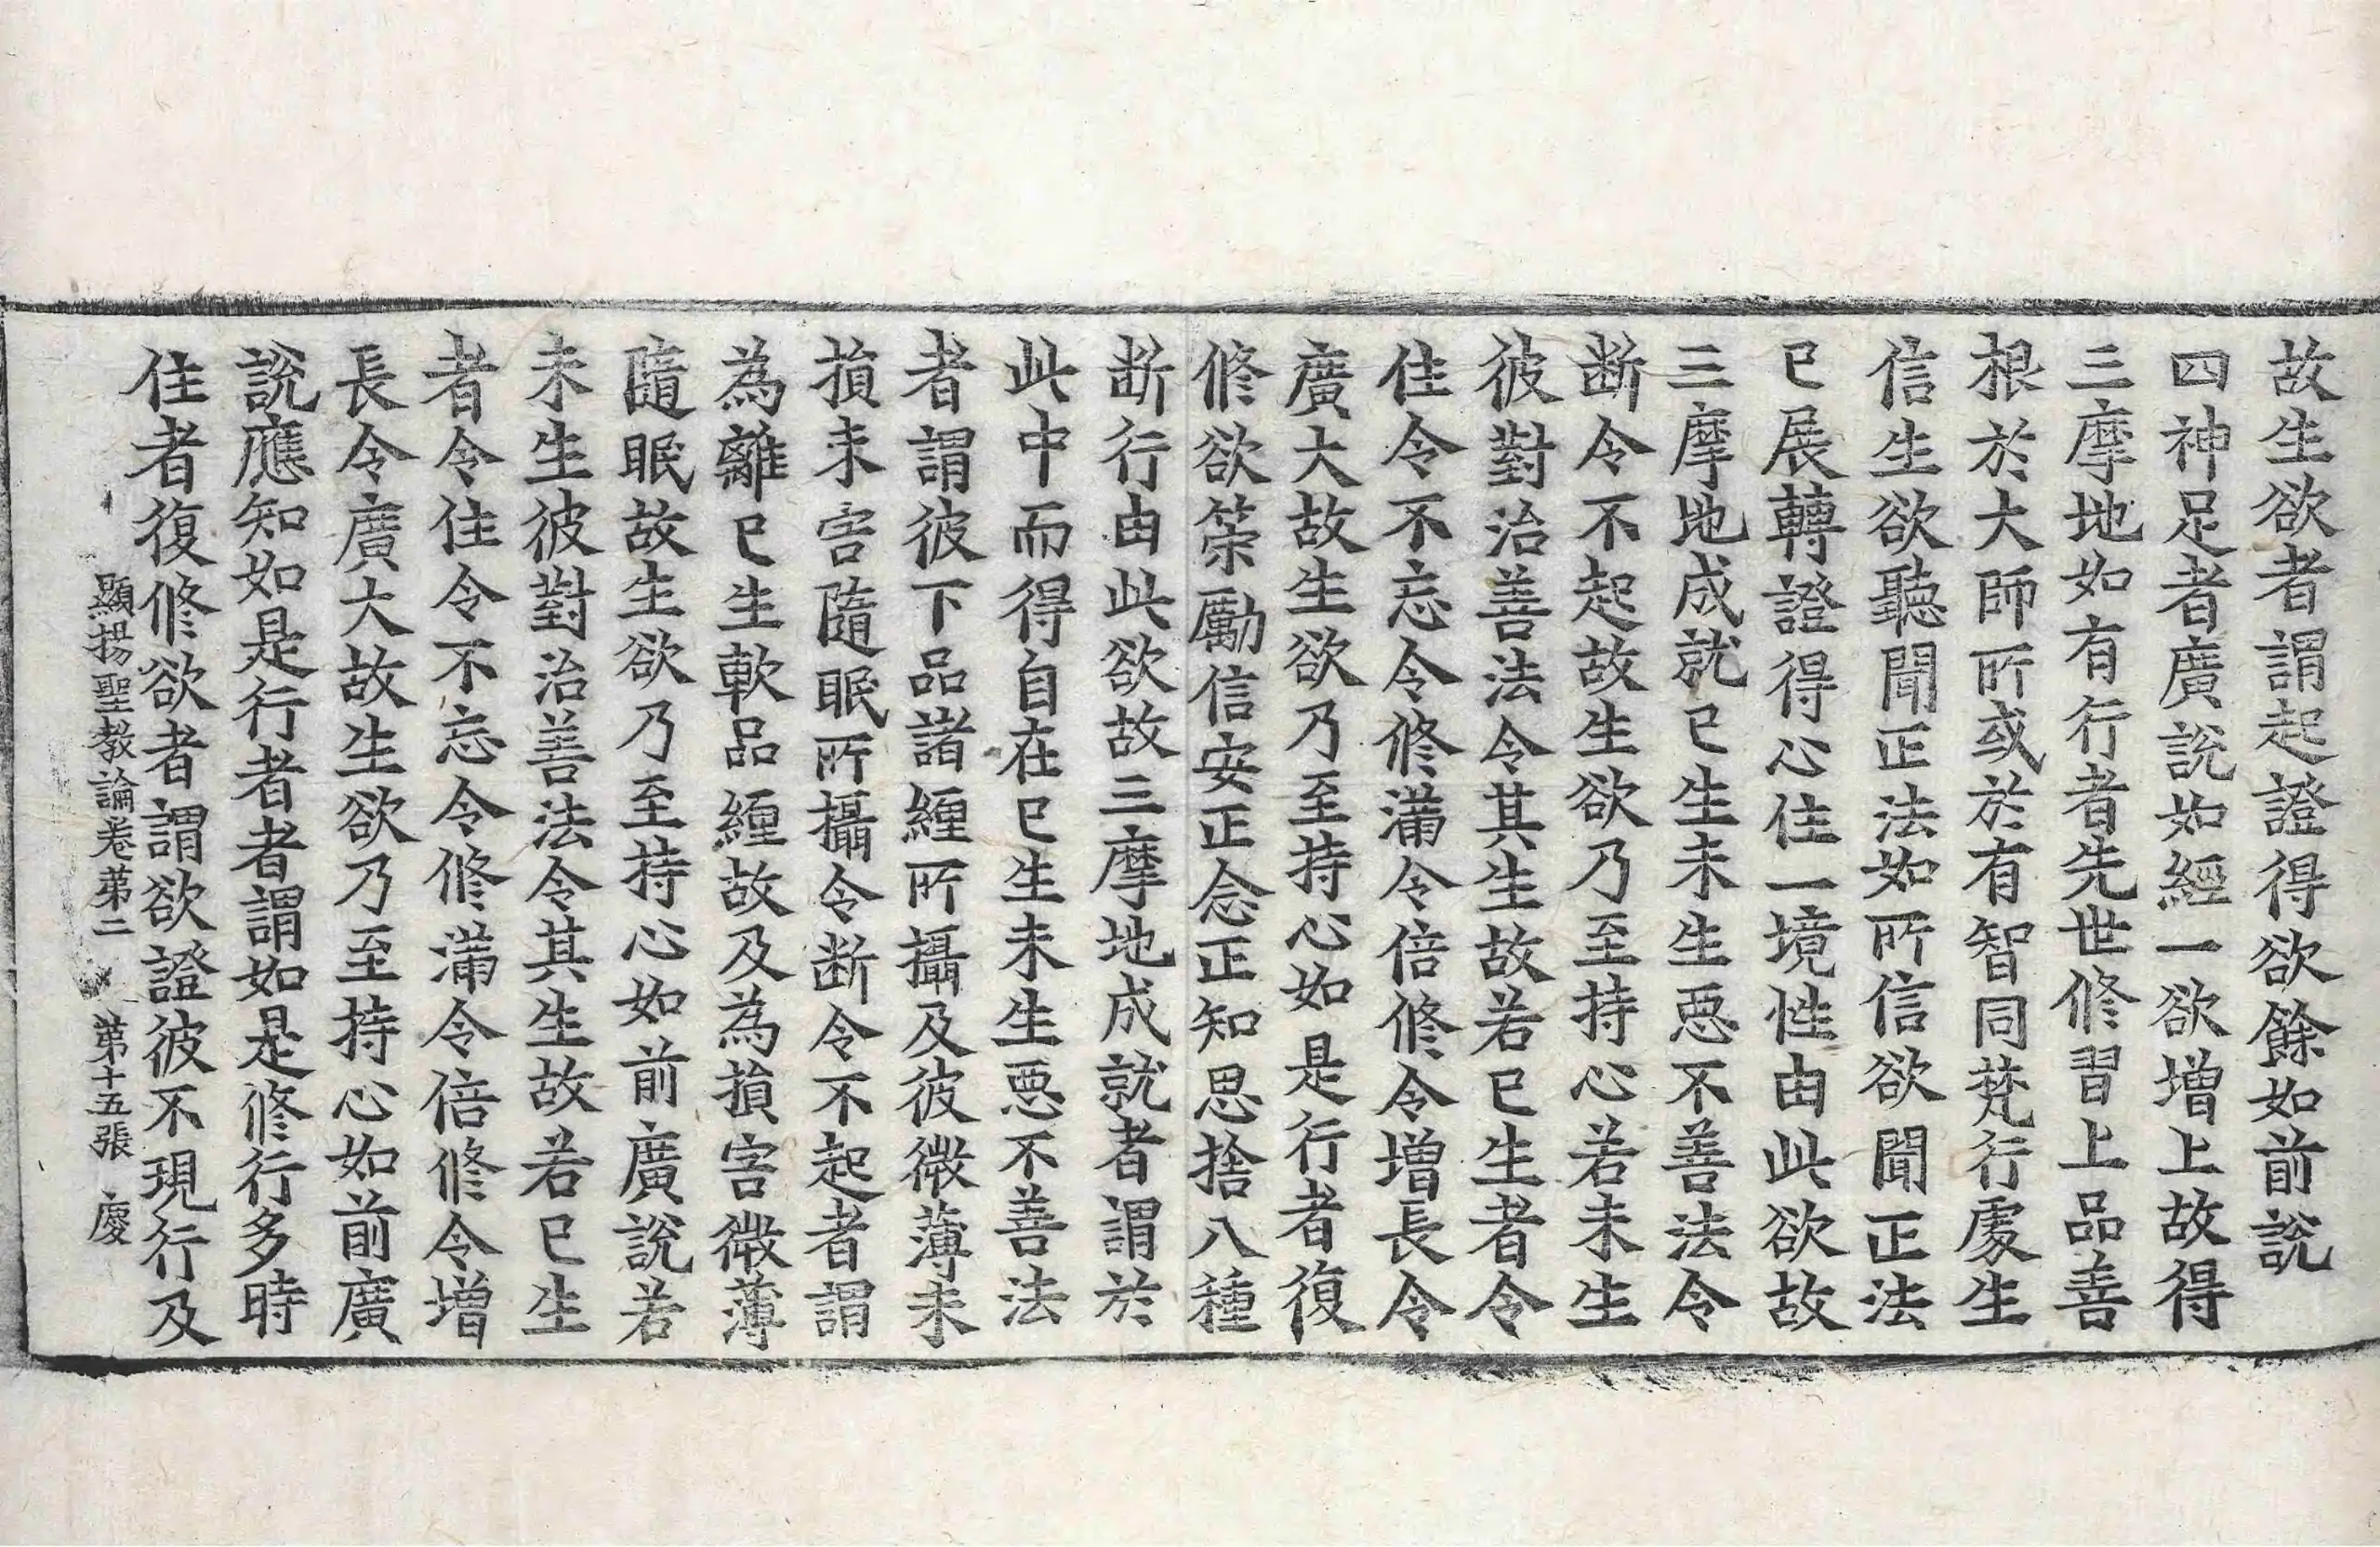 故生欲者謂起證得欲餘如前說
四神足者廣說如經一欲增上故得
三摩地如有行者先世修習上品善
根於大師所或於有智同梵行處生
信生欲聽聞正法如所信欲聞正法
已展轉證得心住一境性由此欲故
三摩地成就已生未生惡不善法令
断令不起故生欲乃至持心若未生
彼對治善法令其生故若已生者令
住令不忘令修滿令倍修令增長令
廣大故生欲乃至持心如是行者復
修欲策勵信安正念正知思捨八種
断行由此欲故三摩地成就者謂於
此中而得自在已生未生惡不善法
者謂彼下品諸纏所攝及彼微薄未
損未害隨眠所攝令断令不起者謂
為離已生軟品纏故及為損害微薄
隨眠故生欲乃至持心如前廣說若
未生彼對治善法令其生故若已生
者令住令不忘令修滿令倍修令增
長令廣大故生欲乃至持心如前廣
說應知如是行者者謂如是修行多時
住者復修欲者謂欲證彼不現行及
顯揚聖教論卷第二 第十五張 慶